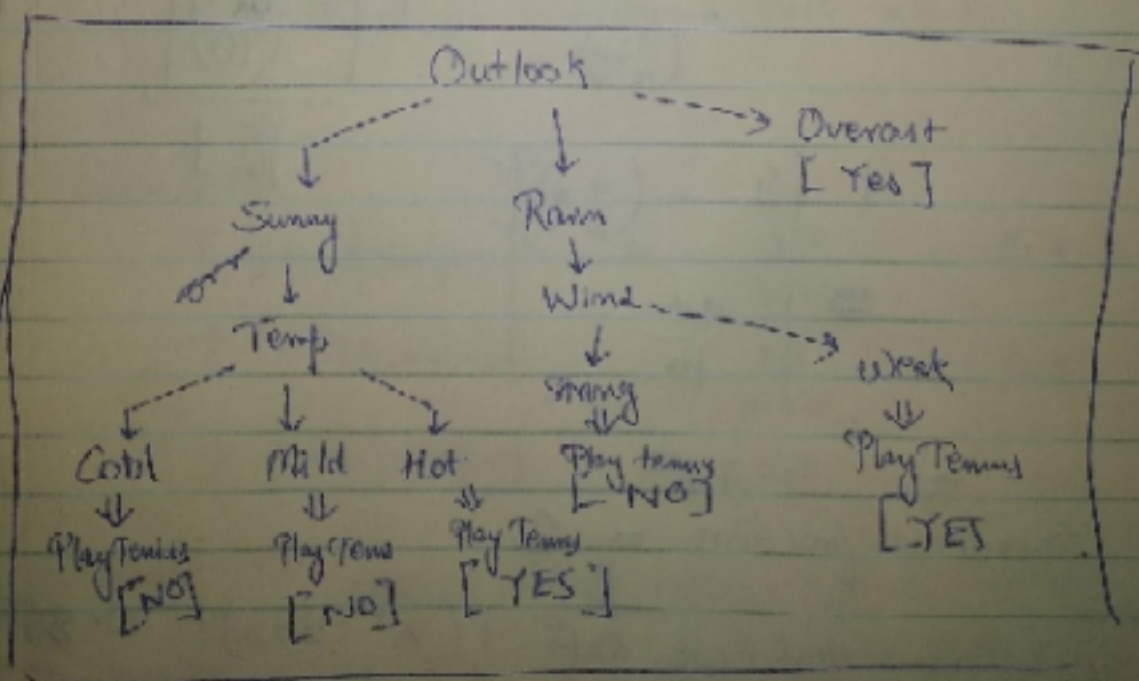 Outlook
Overcast
[Yes]
Sunny
Rain
Wind
Temp
Weak
Strong
Cool
Mild
Hot
Play tennis
[NO]
Play Tennis
[YES
Play Tennis
[NO]
Play Tenns
[NO]
Play Tennis
[YES]